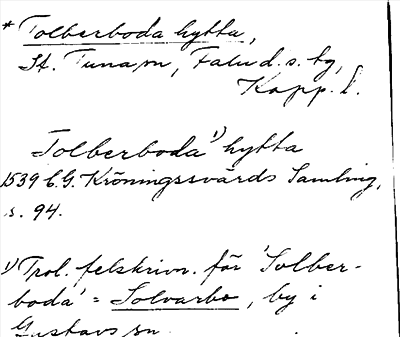 * Tolberboda hytta,
St. Tuna sn, Falu d. s. bg,
Kopp. l.
Tolberboda ¹) hytta
1539 C.G. Kröningssvärds Samling,
s. 94.
¹) Trol. felskrivn. för 'Solber-
boda' = Solvarbo, by i
Gustavs sn.